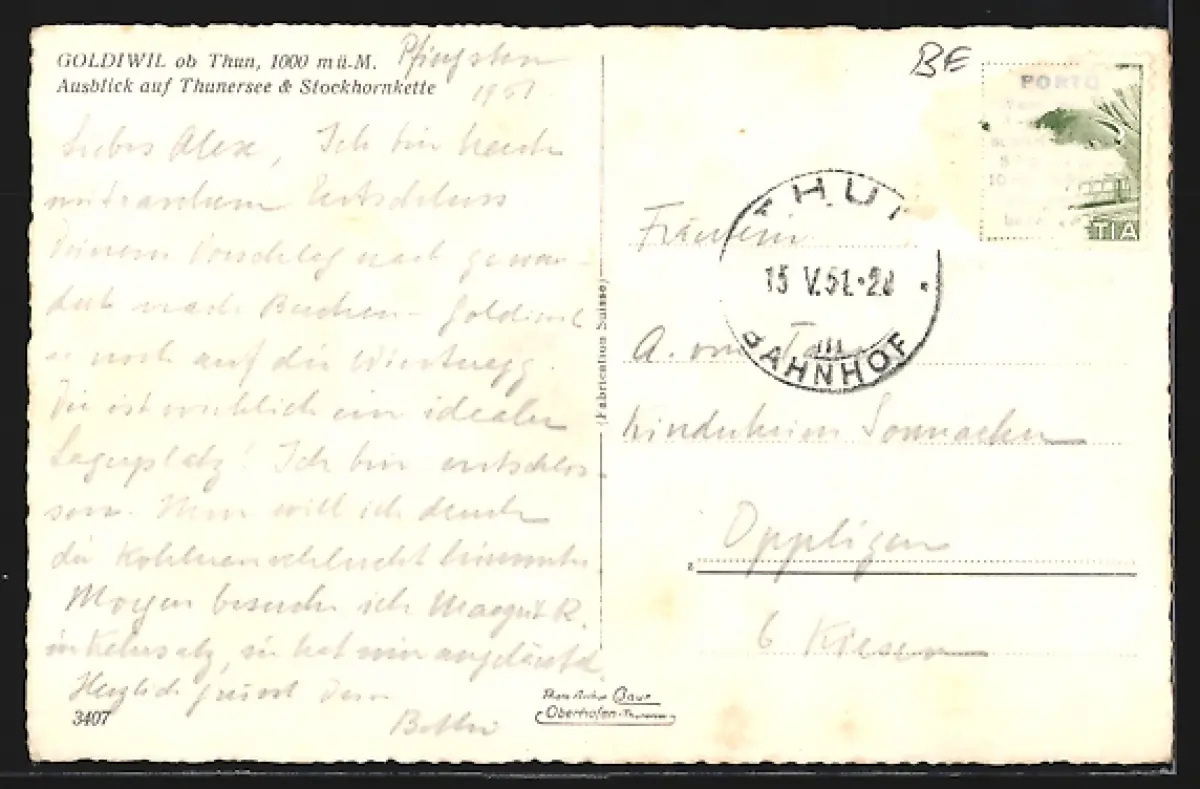 GOLDIWIL ob Thun, 1000 mü.M.
Ausblick auf Thunersee & Stockhornkette
Pfingsten
1951
Liebes Alexe, Ich bin heute
mit raschem Entschluss
Deinem Vorschlag nach gewan-
dert nach Buchen - Goldiwil
u noch auf die
Die ist wirklich ein idealer
Lagerplatz! Ich bin entschlos-
sen. Nun will ich durch
die Kohlerenschlucht hinunter
Morgen besuche ich Margrit R.
in Kehrsatz, sie hat mir angeläutet.
Herzlich grüsst Dein
3407
(Fabrication Suisse)
Photo Gaur
Oberhofen-Thunersee
BE
PORTO
5
10
TIA
THUN
15 V.51.-20
III
BAHNHOF
Fräulein
A. von
Kinderheim Sonnacker
Oppligen
b Kiesen